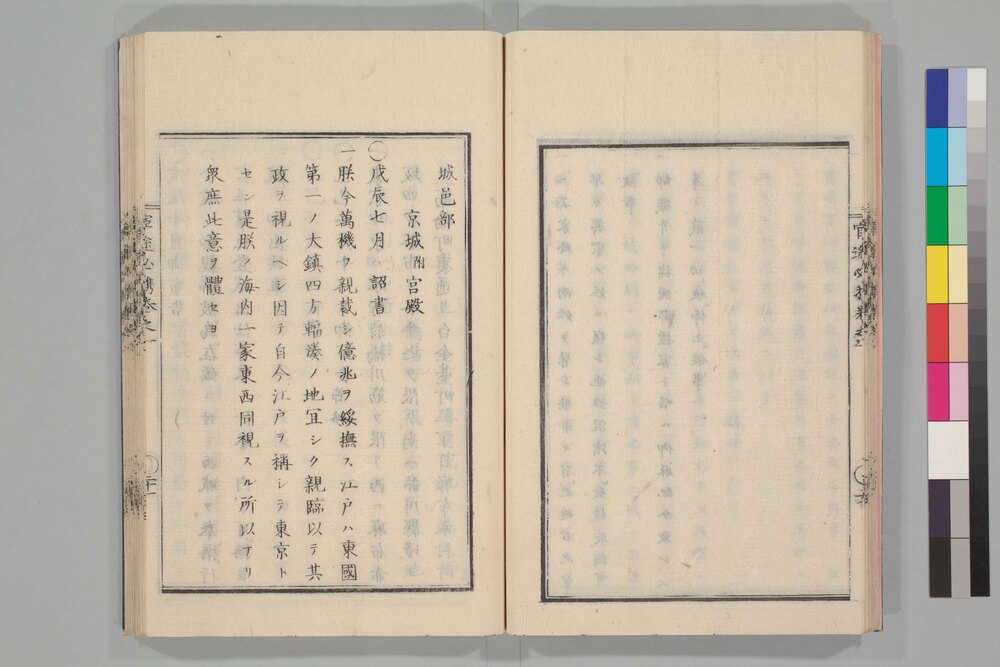 城邑部
京城附宮殿
戊辰七月詔書
一朕今萬機ヲ親裁シ億兆ヲ綏撫ス江戸ハ東國
第一ノ大鎮四方輻湊ノ地冝シク親臨以テ其
政ヲ視ルヘシ因テ自今江戸ヲ稱シテ東京ト
セン是朕ノ海内一家東西同視スル所以ナリ
衆庶此意ヲ體セヨ